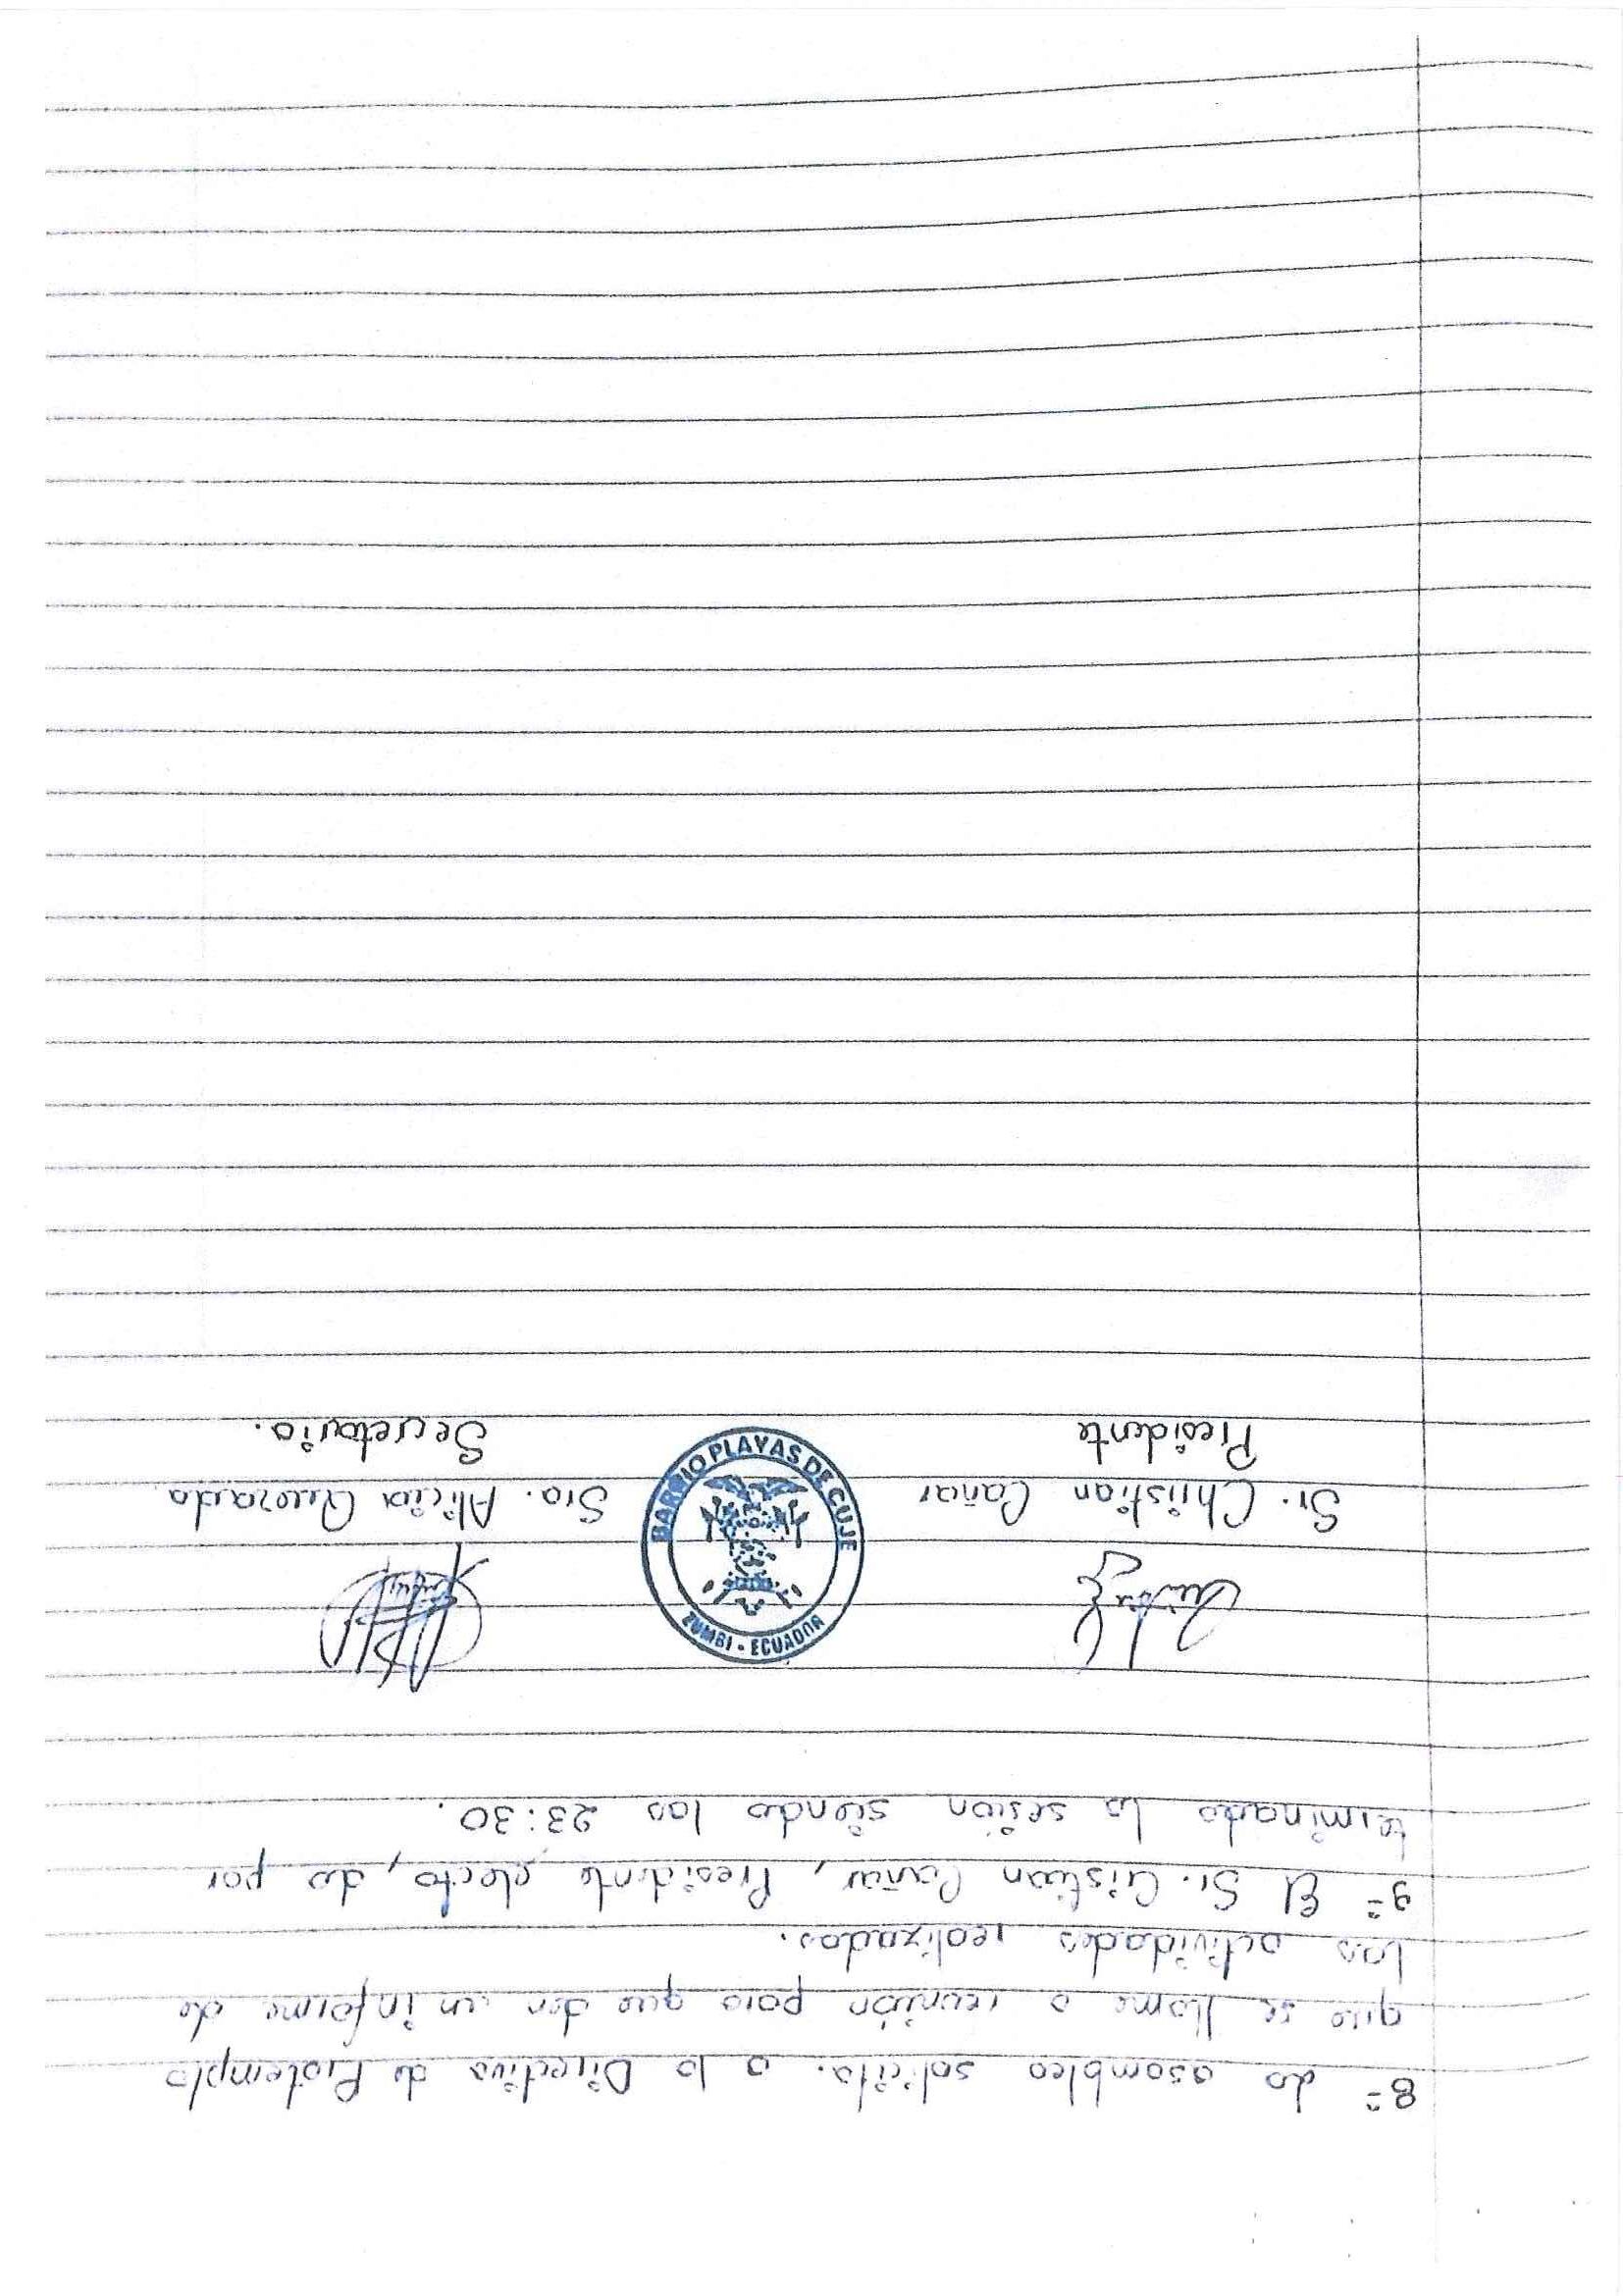 8= La asamblea solicita. a la Directiva de Protemplo
que se llame a reunión para que den un informe de
las actividades realizadas.
9= El Sr. Cristian Cañar, Presidente electo, da por
terminada la sesión siendo las 23:30.
Sr. Christian Cañar
Presidente
BARRIO PLAYAS DE CUJE
ZUMBI - ECUADOR
Sra. Alicia Quezada
Secretaria.